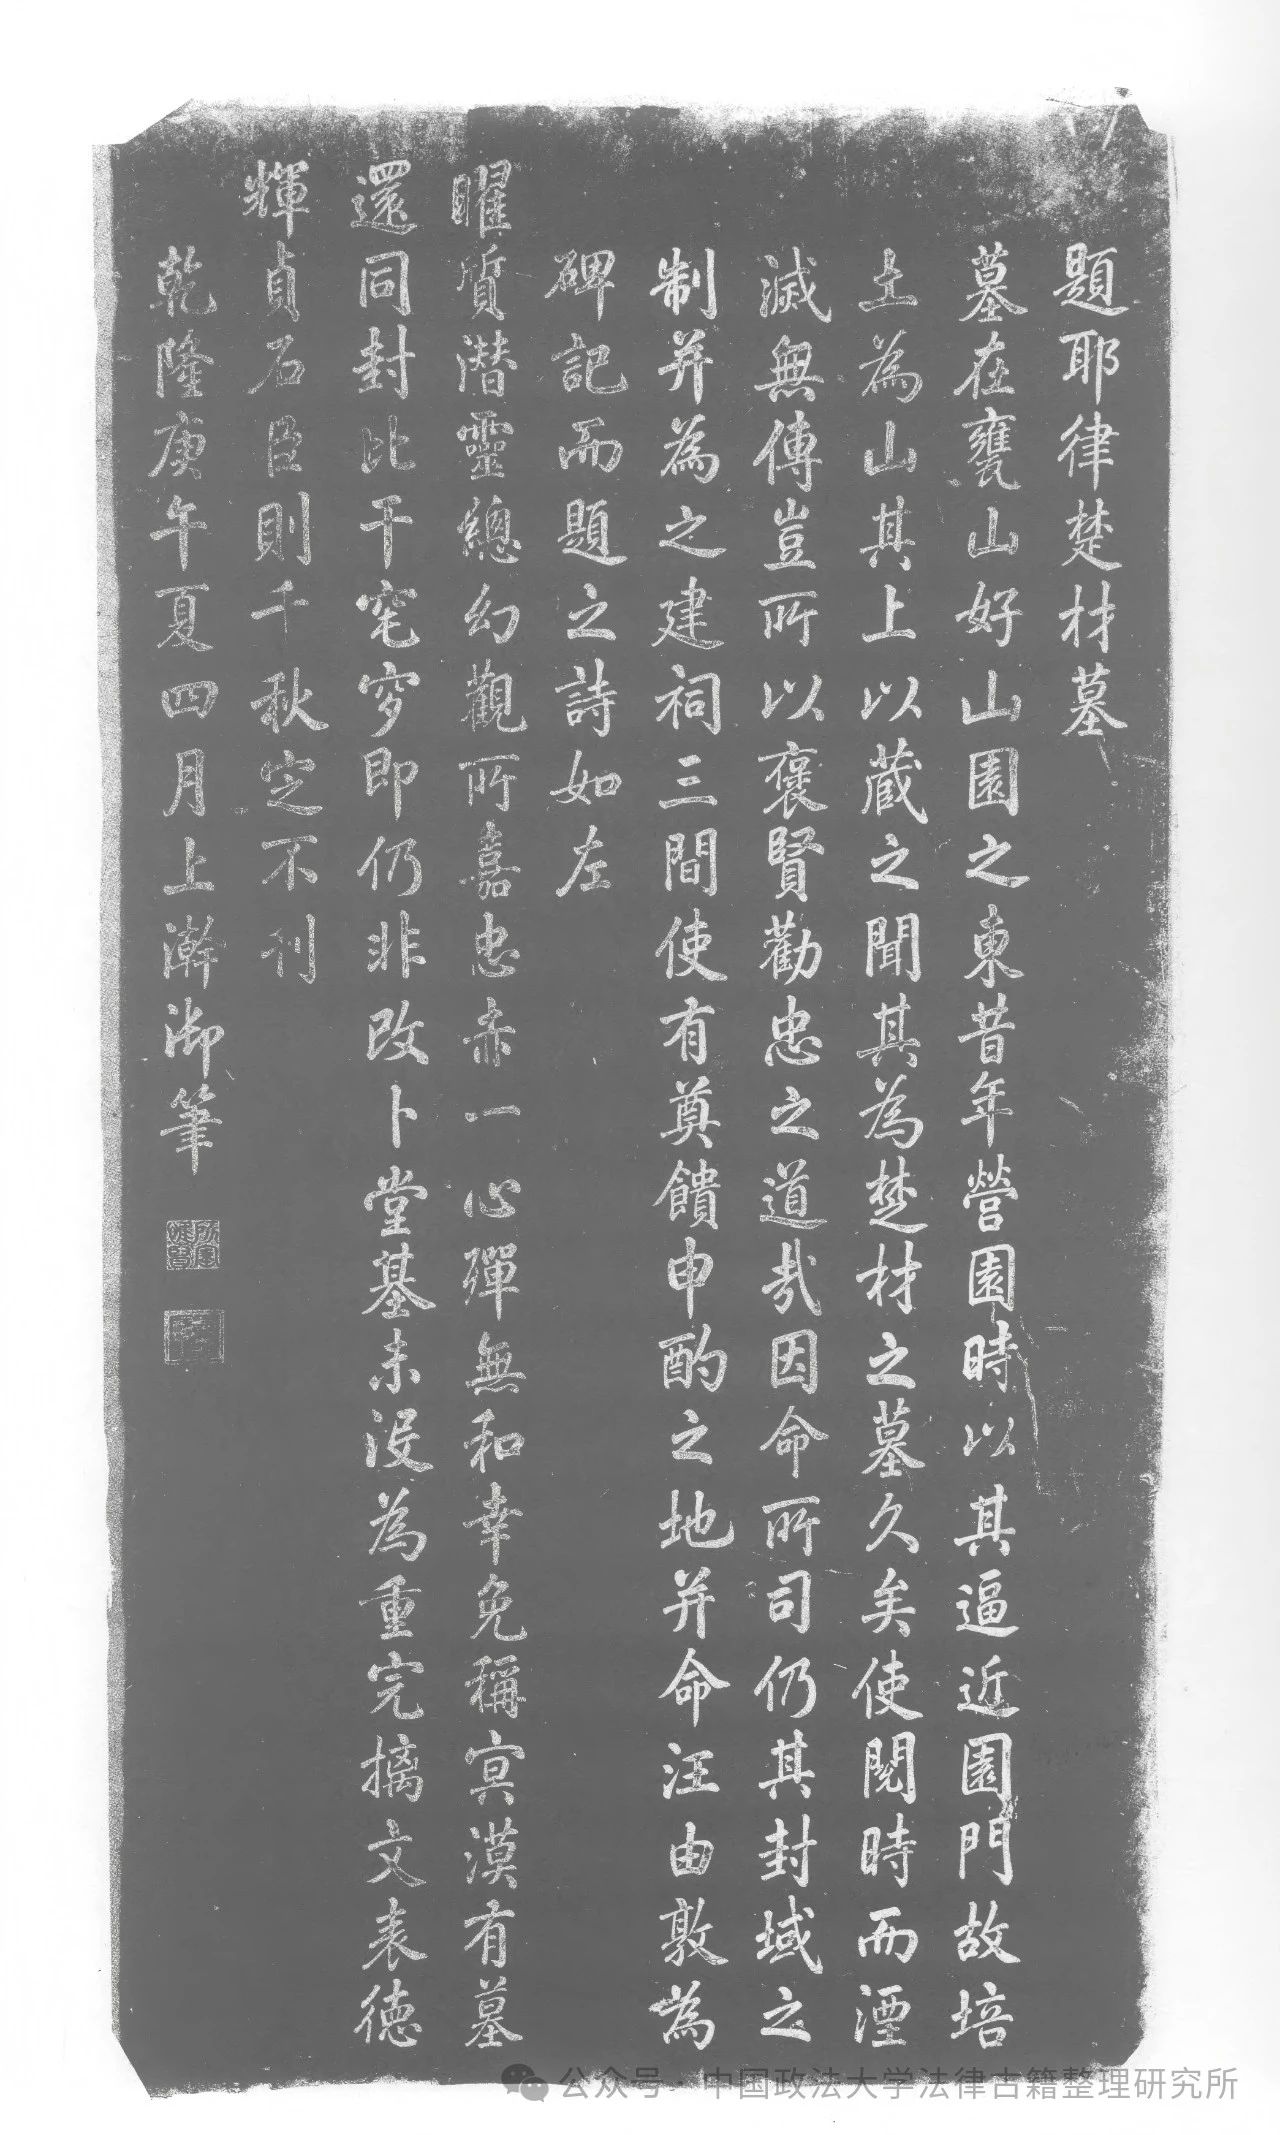 題耶律楚材墓
墓在甕山好山園之東昔年營園時以其逼近園門故培
土為山其上以蔵之聞其為楚材之墓久矣使閱時而湮
滅無傳豈所以褒賢勸忠之道哉因命所司仍其封域之
制并為之建祠三間使有奠饋申酌之地并命汪由敦為
碑記而題之詩如左
曜質潛靈總幻觀所嘉忠赤一心殫無和幸免稱㝠漠有墓
還同封比干窀穸即仍非改卜堂基未没為重完摛文表徳
輝貞石臣則千秋定不刊
乾隆庚午夏四月上澣御筆
公众号·中国政法大学法律古籍整理研究所